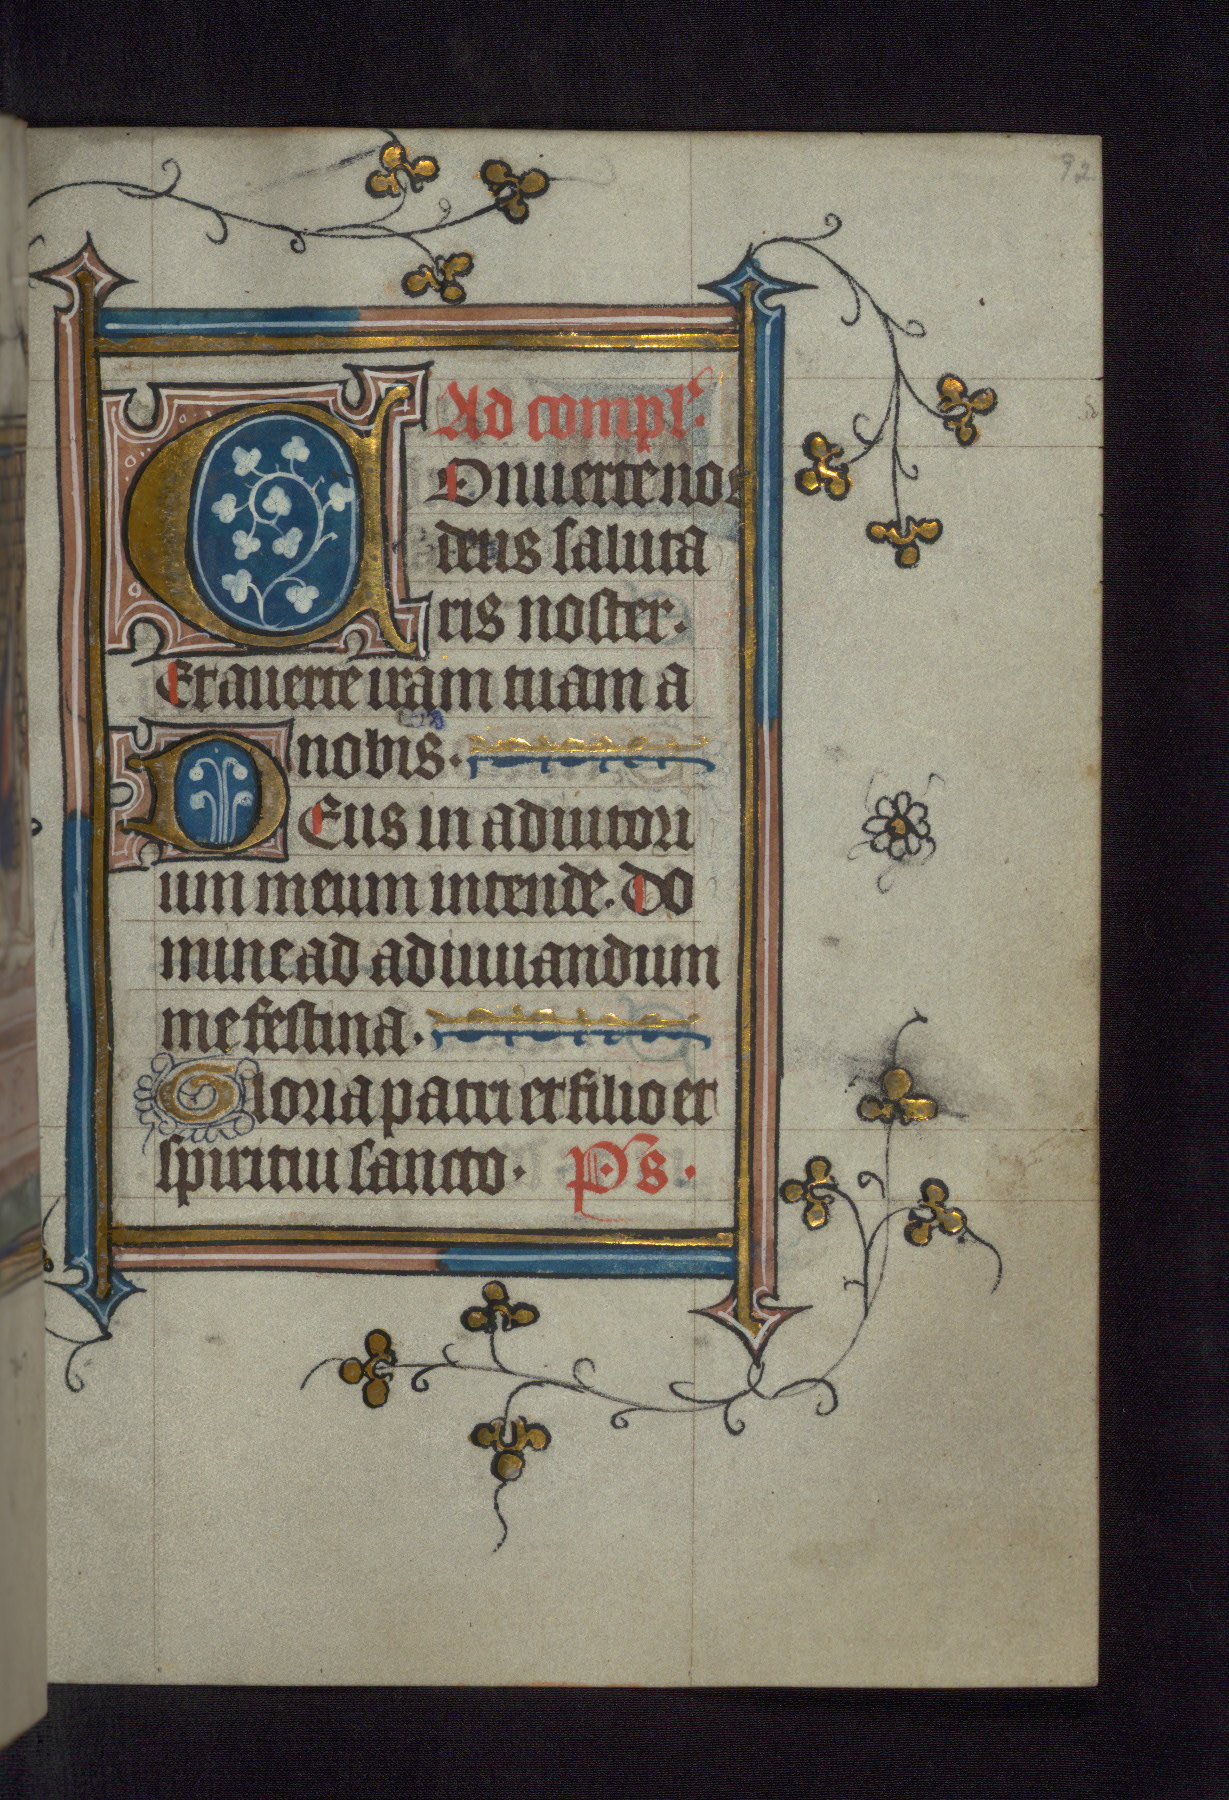 92
Ad compl'.
COnuerte nos
deus saluta
ris noster.
Et auerte iram tuam a
nobis.
DEus in adiutori
um meum intende. Do
mine ad adiuuandum
me festina.
Gloria patri et filio et
spiritui sancto. Ps.